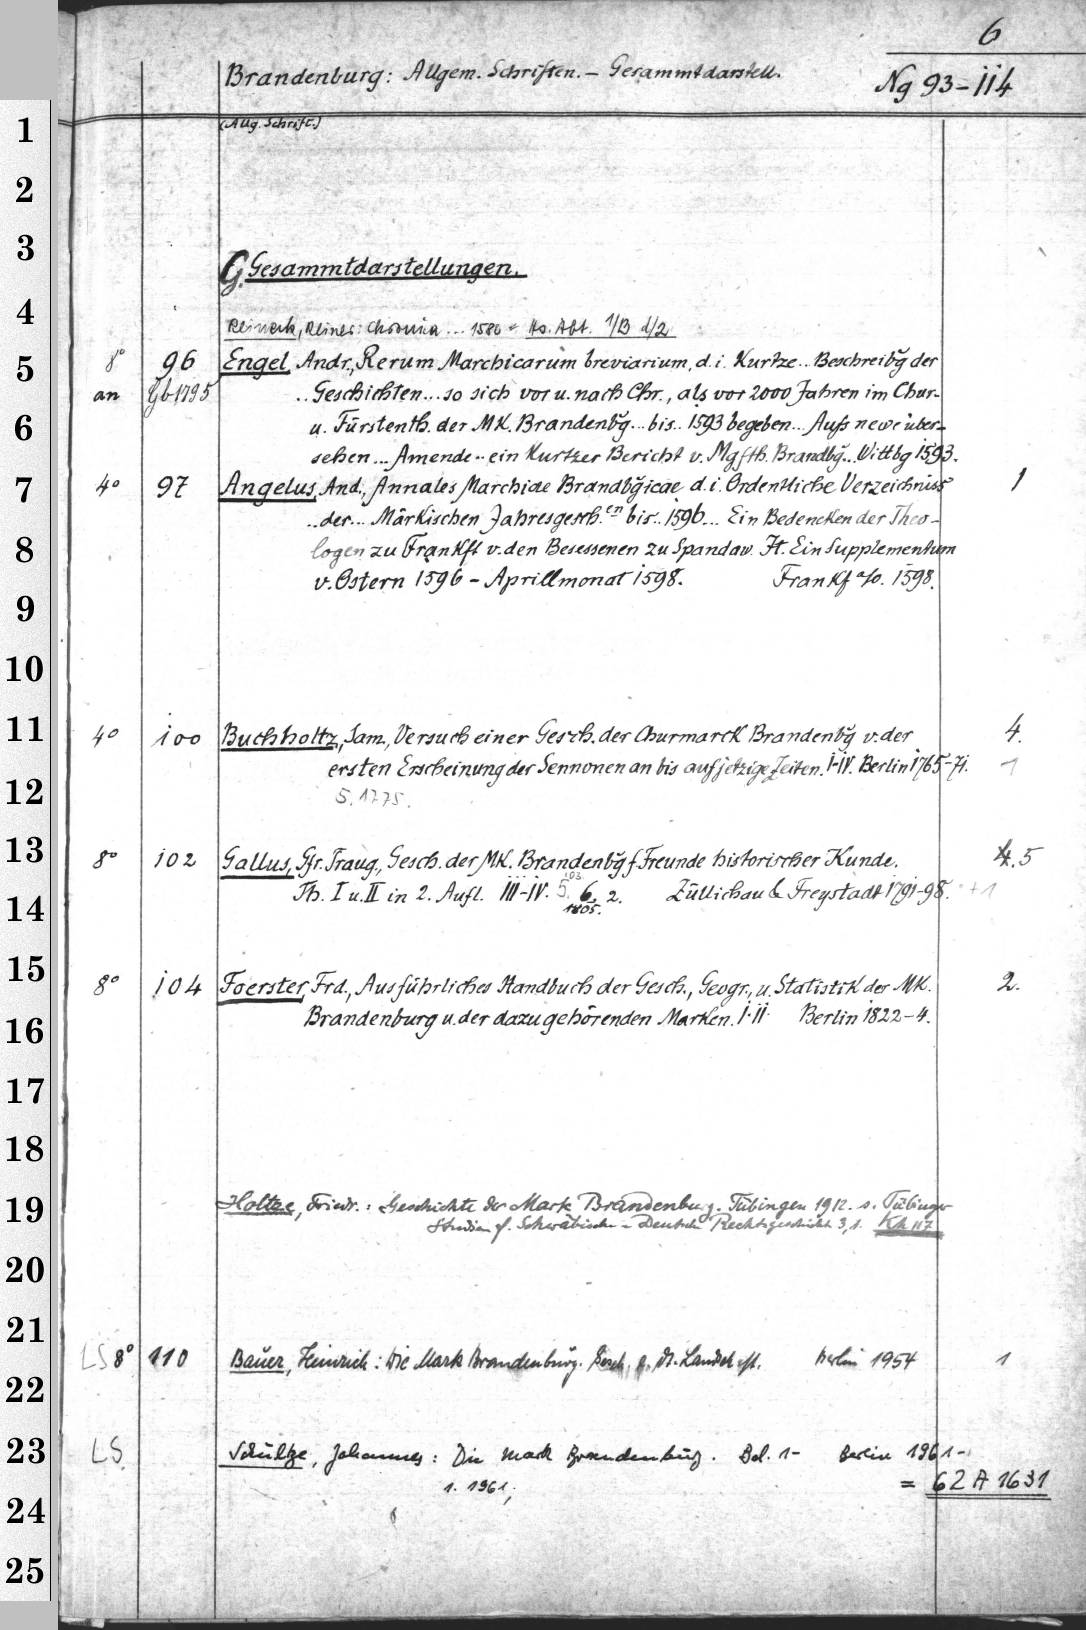 6
Brandenburg: Allgem. Schriften. – Gesammtdarstell.
Ng 93–114
(Allg. Schrift.)
1
2
3
G. Gesammtdarstellungen.
4
Reineck, Reiner: Chronica ... 1580 = Hs. Abt. 1/B d/2
5
8° 96 Engel, Andr., Rerum Marchicarum breviarium, d. i. Kurtze... Beschreibg̃ der
an Gb 1795 .. Geschichten... so sich vor u. nach Chr., als vor 2000 Jahren im Chur-
6
u. Fürstenth. der MK. Brandenbg̃... bis.. 1593 begeben... Aufs newe über-
sehen... Amende.. ein Kurtzer Bericht v. Mgfth. Brandbg̃.. Wittbg 1593.
7
4° 97 Angelus, And., Annales Marchiae Brandbg̃icae d. i. Ordentliche Verzeichniss 1
.. der... Märkischen Jahresgesch.en bis.. 1596... Ein Bedencken der Theo-
8
logen zu Frankft v. den Besessenen zu Spandaw. It. Ein Supplementum
v. Ostern 1596 – Aprillmonat 1598. Frankf a/o. 1598.
9
10
11
4° 100 Buchholtz, Sam., Versuch einer Gesch. der Churmarck Brandenbg̃ v. der 4.
ersten Erscheinung der Sennonen an bis auf jetzige Zeiten. I-IV. Berlin 1765–71. 1
12
5. 1775.
13
8° 102 Gallus, Gfr. Traug., Gesch. der MK. Brandenbg̃ f Freunde historischer Kunde. 4. 5
Th. I u. II in 2. Aufl. III-IV. 5. 6, 2. Züllichau & Freystadt 1791–98. +1
14
1805.
15
8° 104 Foerster, Frd., Ausführliches Handbuch der Gesch., Geogr., u. Statistik der MK. 2.
16
Brandenburg u. der dazu gehörenden Marken. I-II Berlin 1822–4.
17
18
19
Holtze, Friedr.: Geschichte der Mark Brandenburg. Tübingen 1912. s. Tübinger
Studien f. Schwäbische u. Deutsche Rechtsgeschichte 3,1. Kh 117
20
21
LS 8° 110 Bauer, Heinrich: Die Mark Brandenburg. Gesch. e. dt. Landschaft. Berlin 1954 1
22
23
LS. Schultze, Johannes: Die Mark Brandenburg. Bd. 1– Berlin 1961–
1. 1961; = 62 A 1631
24
25